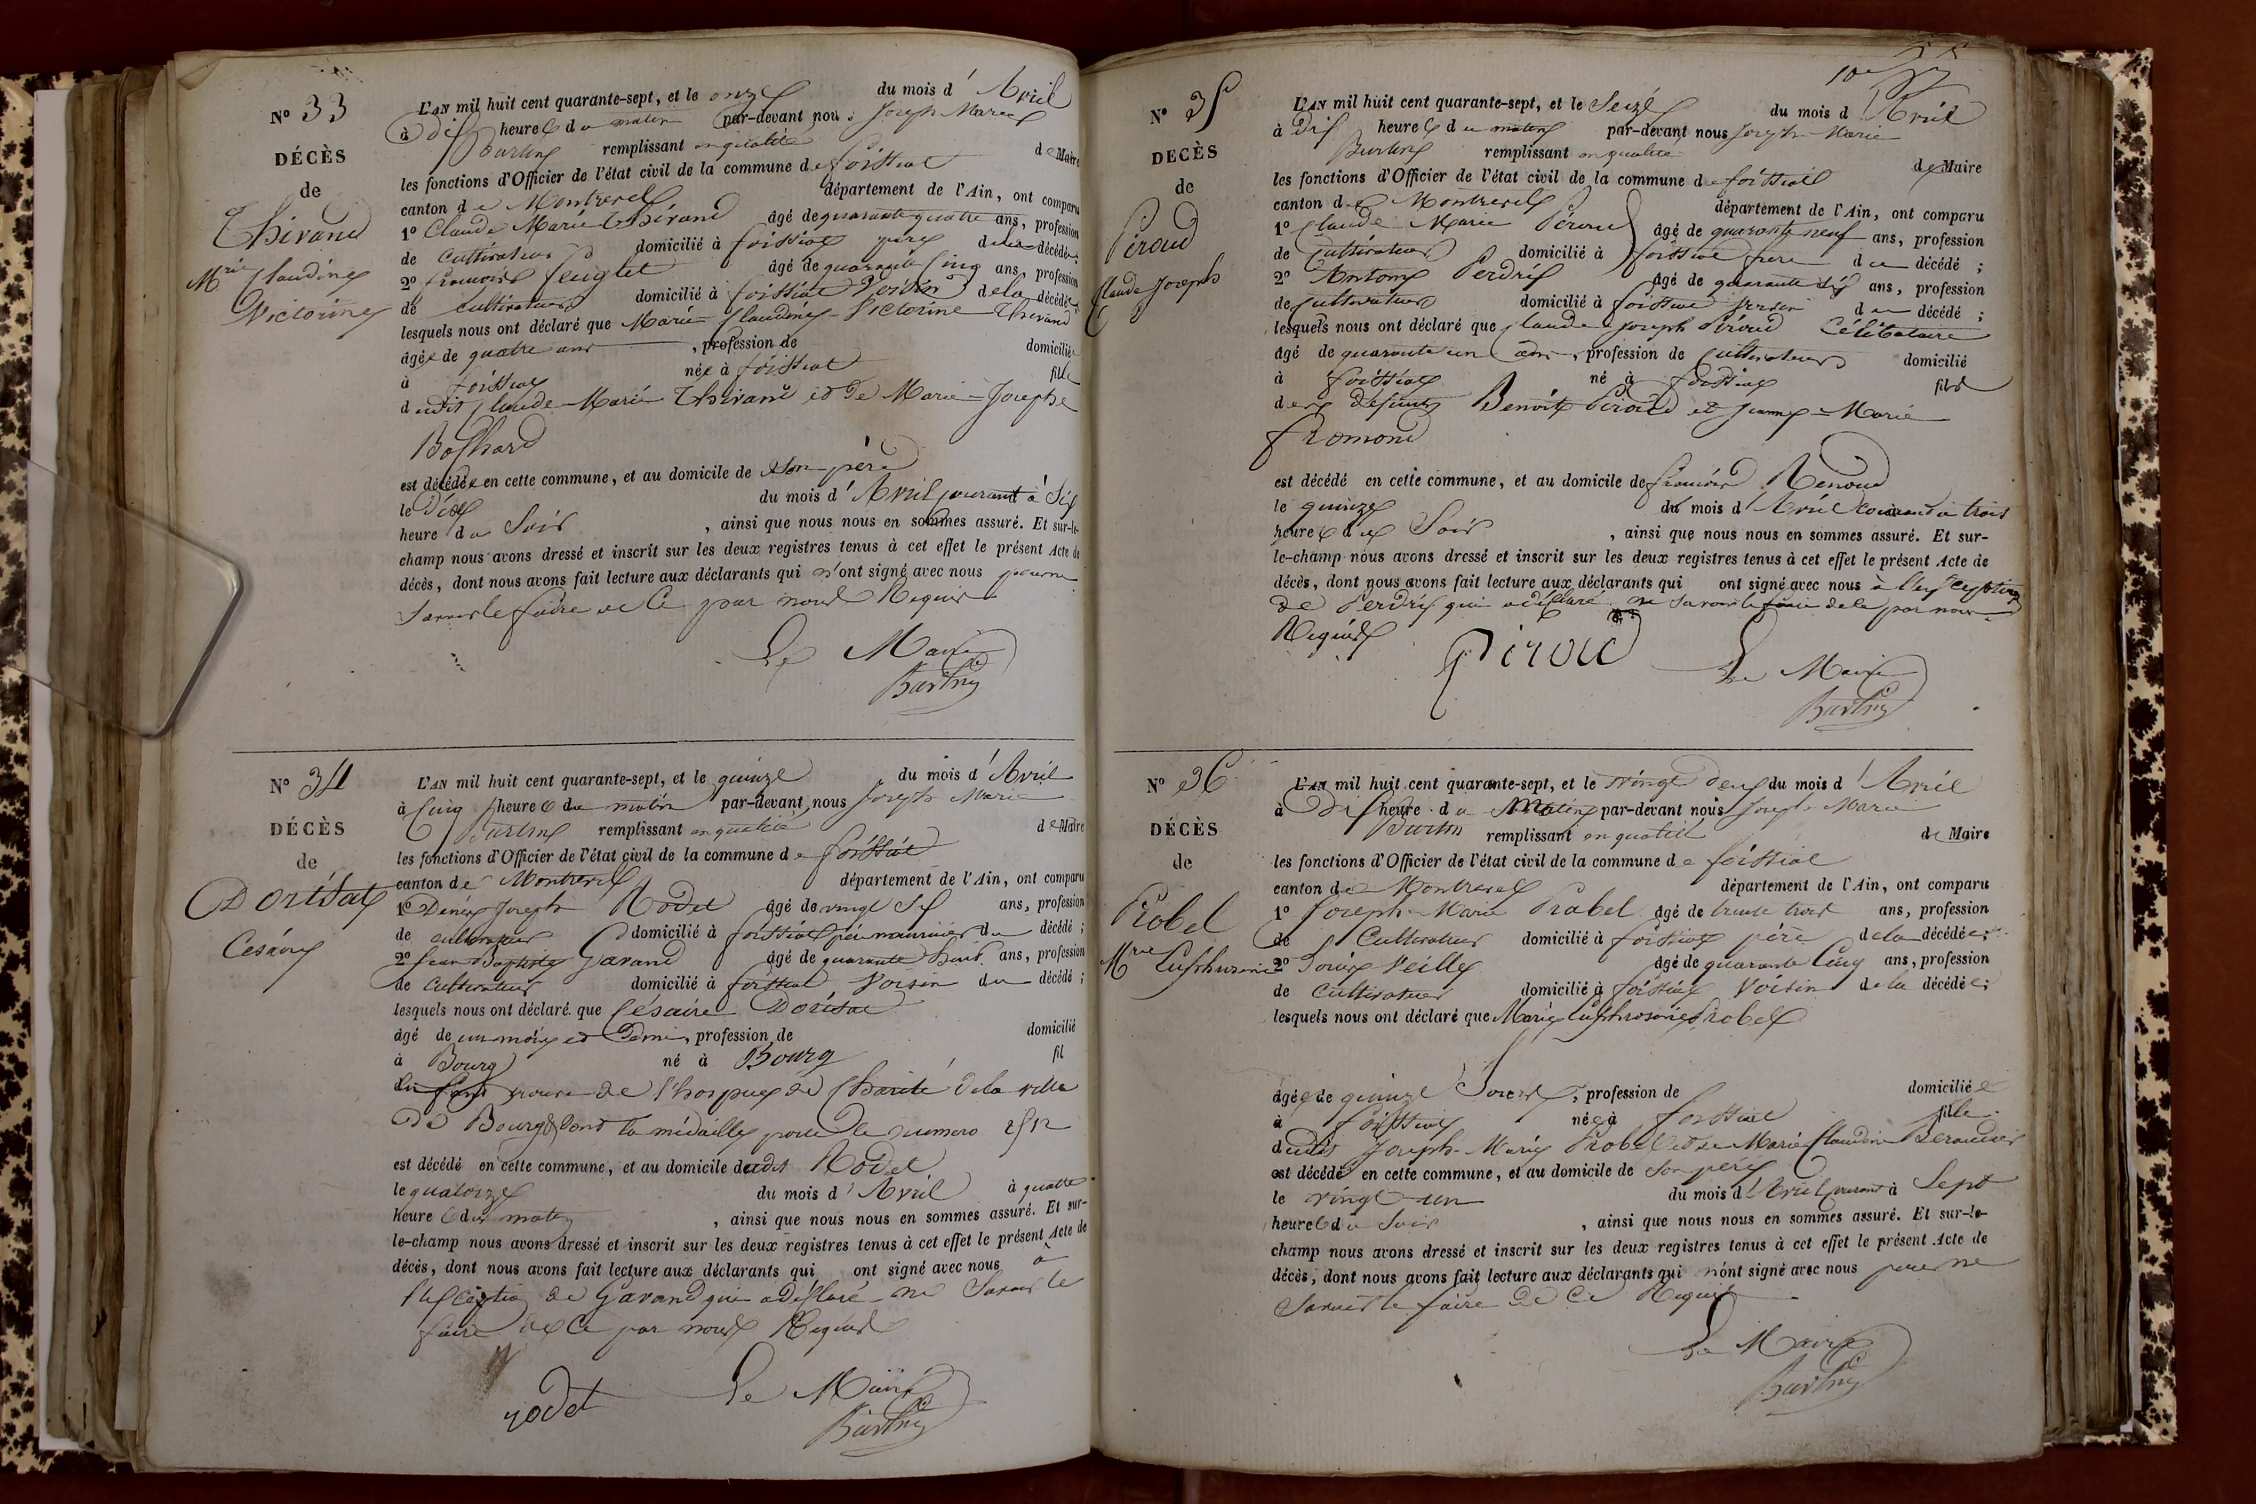 N° 33
DÉCÈS
de
Thivand
Mrie Claudine
Victorine
L'AN mil huit cent quarante-sept, et le onze du mois d'Avril
à dix heures du matin par-devant nous Joseph Marie
Burtin remplissant en qualité de Maire
les fonctions d'Officier de l'état civil de la commune de foissiat
canton de Montrevel département de l'Ain, ont comparu
1° Claude Marie Thivand âgé de quarante quatre ans, profession
de cultivateur domicilié à foissiat père de la décédée;
2° françois feuglet âgé de quarante cinq ans, profession
de cultivateur domicilié à foissiat Voisin de la décédée
lesquels nous ont déclaré que Marie Claudine Victorine Thivand
âgée de quatre ans, profession de domiciliée
à foissiat née à foissiat fille
dudit Claude Marie Thivand et de Marie Josephe
Bochard
est décédée en cette commune, et au domicile de son père
le dix du mois d'Avril courant à Six
heure du Soir, ainsi que nous nous en sommes assuré. Et sur-le-
champ nous avons dressé et inscrit sur les deux registres tenus à cet effet le présent Acte de
décès, dont nous avons fait lecture aux déclarants qui n'ont signé avec nous pour ne
Savoir le faire de Ce par nous Requis
Le Maire
Burtin
N° 34
DÉCÈS
de
Dorisat
Césaire
L'AN mil huit cent quarante-sept, et le quinze du mois d'Avril
à Cinq heures du matin par-devant nous Joseph Marie
Burtin remplissant en qualité de Maire
les fonctions d'Officier de l'état civil de la commune de foissiat
canton de Montrevel département de l'Ain, ont comparu
1° Denis Joseph Rodet âgé de vingt Six ans, profession
de cultivateur domicilié à foissiat père nourricier du décédé;
2° Jean Baptiste Gavand âgé de quarante huit ans, profession
de Cultivateur domicilié à foissiat Voisin du décédé;
lesquels nous ont déclaré que Césaire Dorisat
âgé de un mois et Demi, profession de domicilié
à Bourg né à Bourg fil
trouvé de l'hospice de Charité de la ville
De Bourg dont la médaille porte le numero
est décédé en cette commune, et au domicile dudit Rodet
le quatorze du mois d'Avril à quatre
heures du matin, ainsi que nous nous en sommes assuré. Et sur-
le-champ nous avons dressé et inscrit sur les deux registres tenus à cet effet le présent Acte de
décès, dont nous avons fait lecture aux déclarants qui ont signé avec nous à
l'Exception de Gavand qui a déclaré ne Savoir le
faire de Ce par nous Requis
rodet Le Maire
Burtin
N° 35
DECÈS
de
Péroud
Claude Joseph
L'AN mil huit cent quarante-sept, et le Seize du mois d'Avril
à Dix heures du matin par-devant nous Joseph Marie
Burtin remplissant en qualité de Maire
les fonctions d'Officier de l'état civil de la commune de foissiat
canton de Montrevel département de l'Ain, ont comparu
1° Claude Marie Péroud âgé de quarante neuf ans, profession
de Cultivateur domicilié à foissiat frere du décédé;
2° Antoine Perdrix âgé de quarante six ans, profession
de Cultivateur domicilié à foissiat Voisin du décédé;
lesquels nous ont déclaré que Claude Joseph Péroud Célibataire
âgé de quarante un ans, profession de Cultivateur domicilié
à foissiat né à foissiat fils
des defunts Benoit Péroud et Jeanne Marie
fromond
est décédé en cette commune, et au domicile de françois Renoud
le quinze du mois d'Avril courant à trois
heures du Soir, ainsi que nous nous en sommes assuré. Et sur-
le-champ nous avons dressé et inscrit sur les deux registres tenus à cet effet le présent Acte de
décès, dont nous avons fait lecture aux déclarants qui ont signé avec nous à l'Exception
de Perdrix qui a déclaré ne Savoir le faire de Ce par nous
Requis
Piroud Le Maire
Burtin
N° 36
DÉCÈS
de
Probel
Mrie Euphrosine
L'AN mil huit cent quarante-sept, et le vingt deux du mois d'Avril
à Dix heure du Matin par-devant nous Joseph Marie
Burtin remplissant en qualité de Maire
les fonctions d'Officier de l'état civil de la commune de foissiat
canton de Montrevel département de l'Ain, ont comparu
1° Joseph Marie Probel âgé de trente trois ans, profession
de Cultivateur domicilié à foissiat père de la décédée;
2° Louis Veille âgé de quarante Cinq ans, profession
de Cultivateur domicilié à foissiat Voisin de la décédée;
lesquels nous ont déclaré que Marie Euphrosine Probel
âgée de quinze Jours, profession de domiciliée
à foissiat née à foissiat fille
dudit Joseph Marie Probel et de Marie Claudine Beraudier
est décédé en cette commune, et au domicile de Son père
le vingt un du mois d'Avril courant à Sept
heures du Soir, ainsi que nous nous en sommes assuré. Et sur-le-
champ nous avons dressé et inscrit sur les deux registres tenus à cet effet le présent Acte de
décès, dont nous avons fait lecture aux déclarants qui n'ont signé avec nous pour ne
Savoir le faire de Ce Requis
Le Maire
Burtin